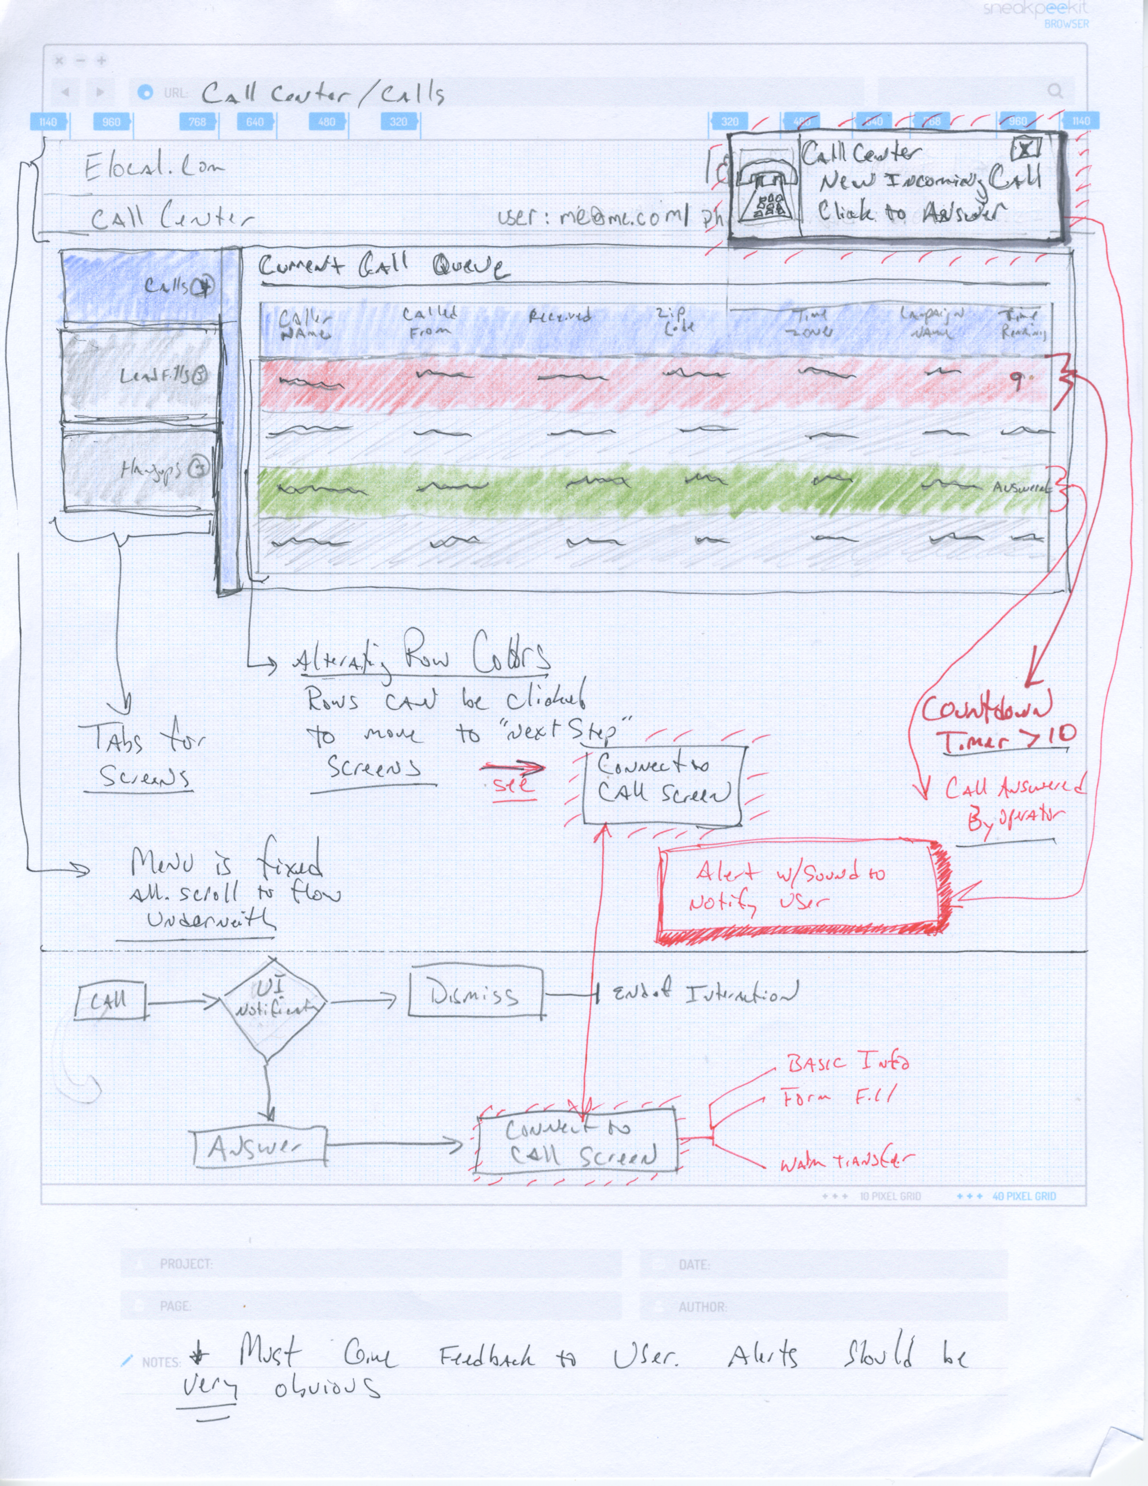 sneakpeekit
BROWSER
URL: Call Center/Calls
1140 960 768 640 480 320 320 480 640 768 960 1140
Elocal.com
Call Center
New Incoming Call
Click to Answer
X
Call Center user: me@me.com/ ph
Calls 4
Lead Fills 3
Hangups 3
Current Call Queue
Caller Name
Called From
Received
Zip Code
Time Zone
Campaign Name
Time
9
Answered
Alternating Row Colors
Rows can be clicked
to move to "Next Step"
Screens
see
Connect to
Call Screen
Tabs for
Screens
Countdown
Timer > 10
Call Answered
By Operator
Menu is fixed
All scroll to flow
Underneith
Alert w/Sound to
Notify User
Call
UI
Notification
Dismiss
End of Interaction
Answer
Connect to
Call Screen
Basic Info
Form Fill
Warm Transfer
10 PIXEL GRID 40 PIXEL GRID
PROJECT: DATE:
PAGE: AUTHOR:
NOTES: * Must Give Feedback to User. Alerts should be
very obvious